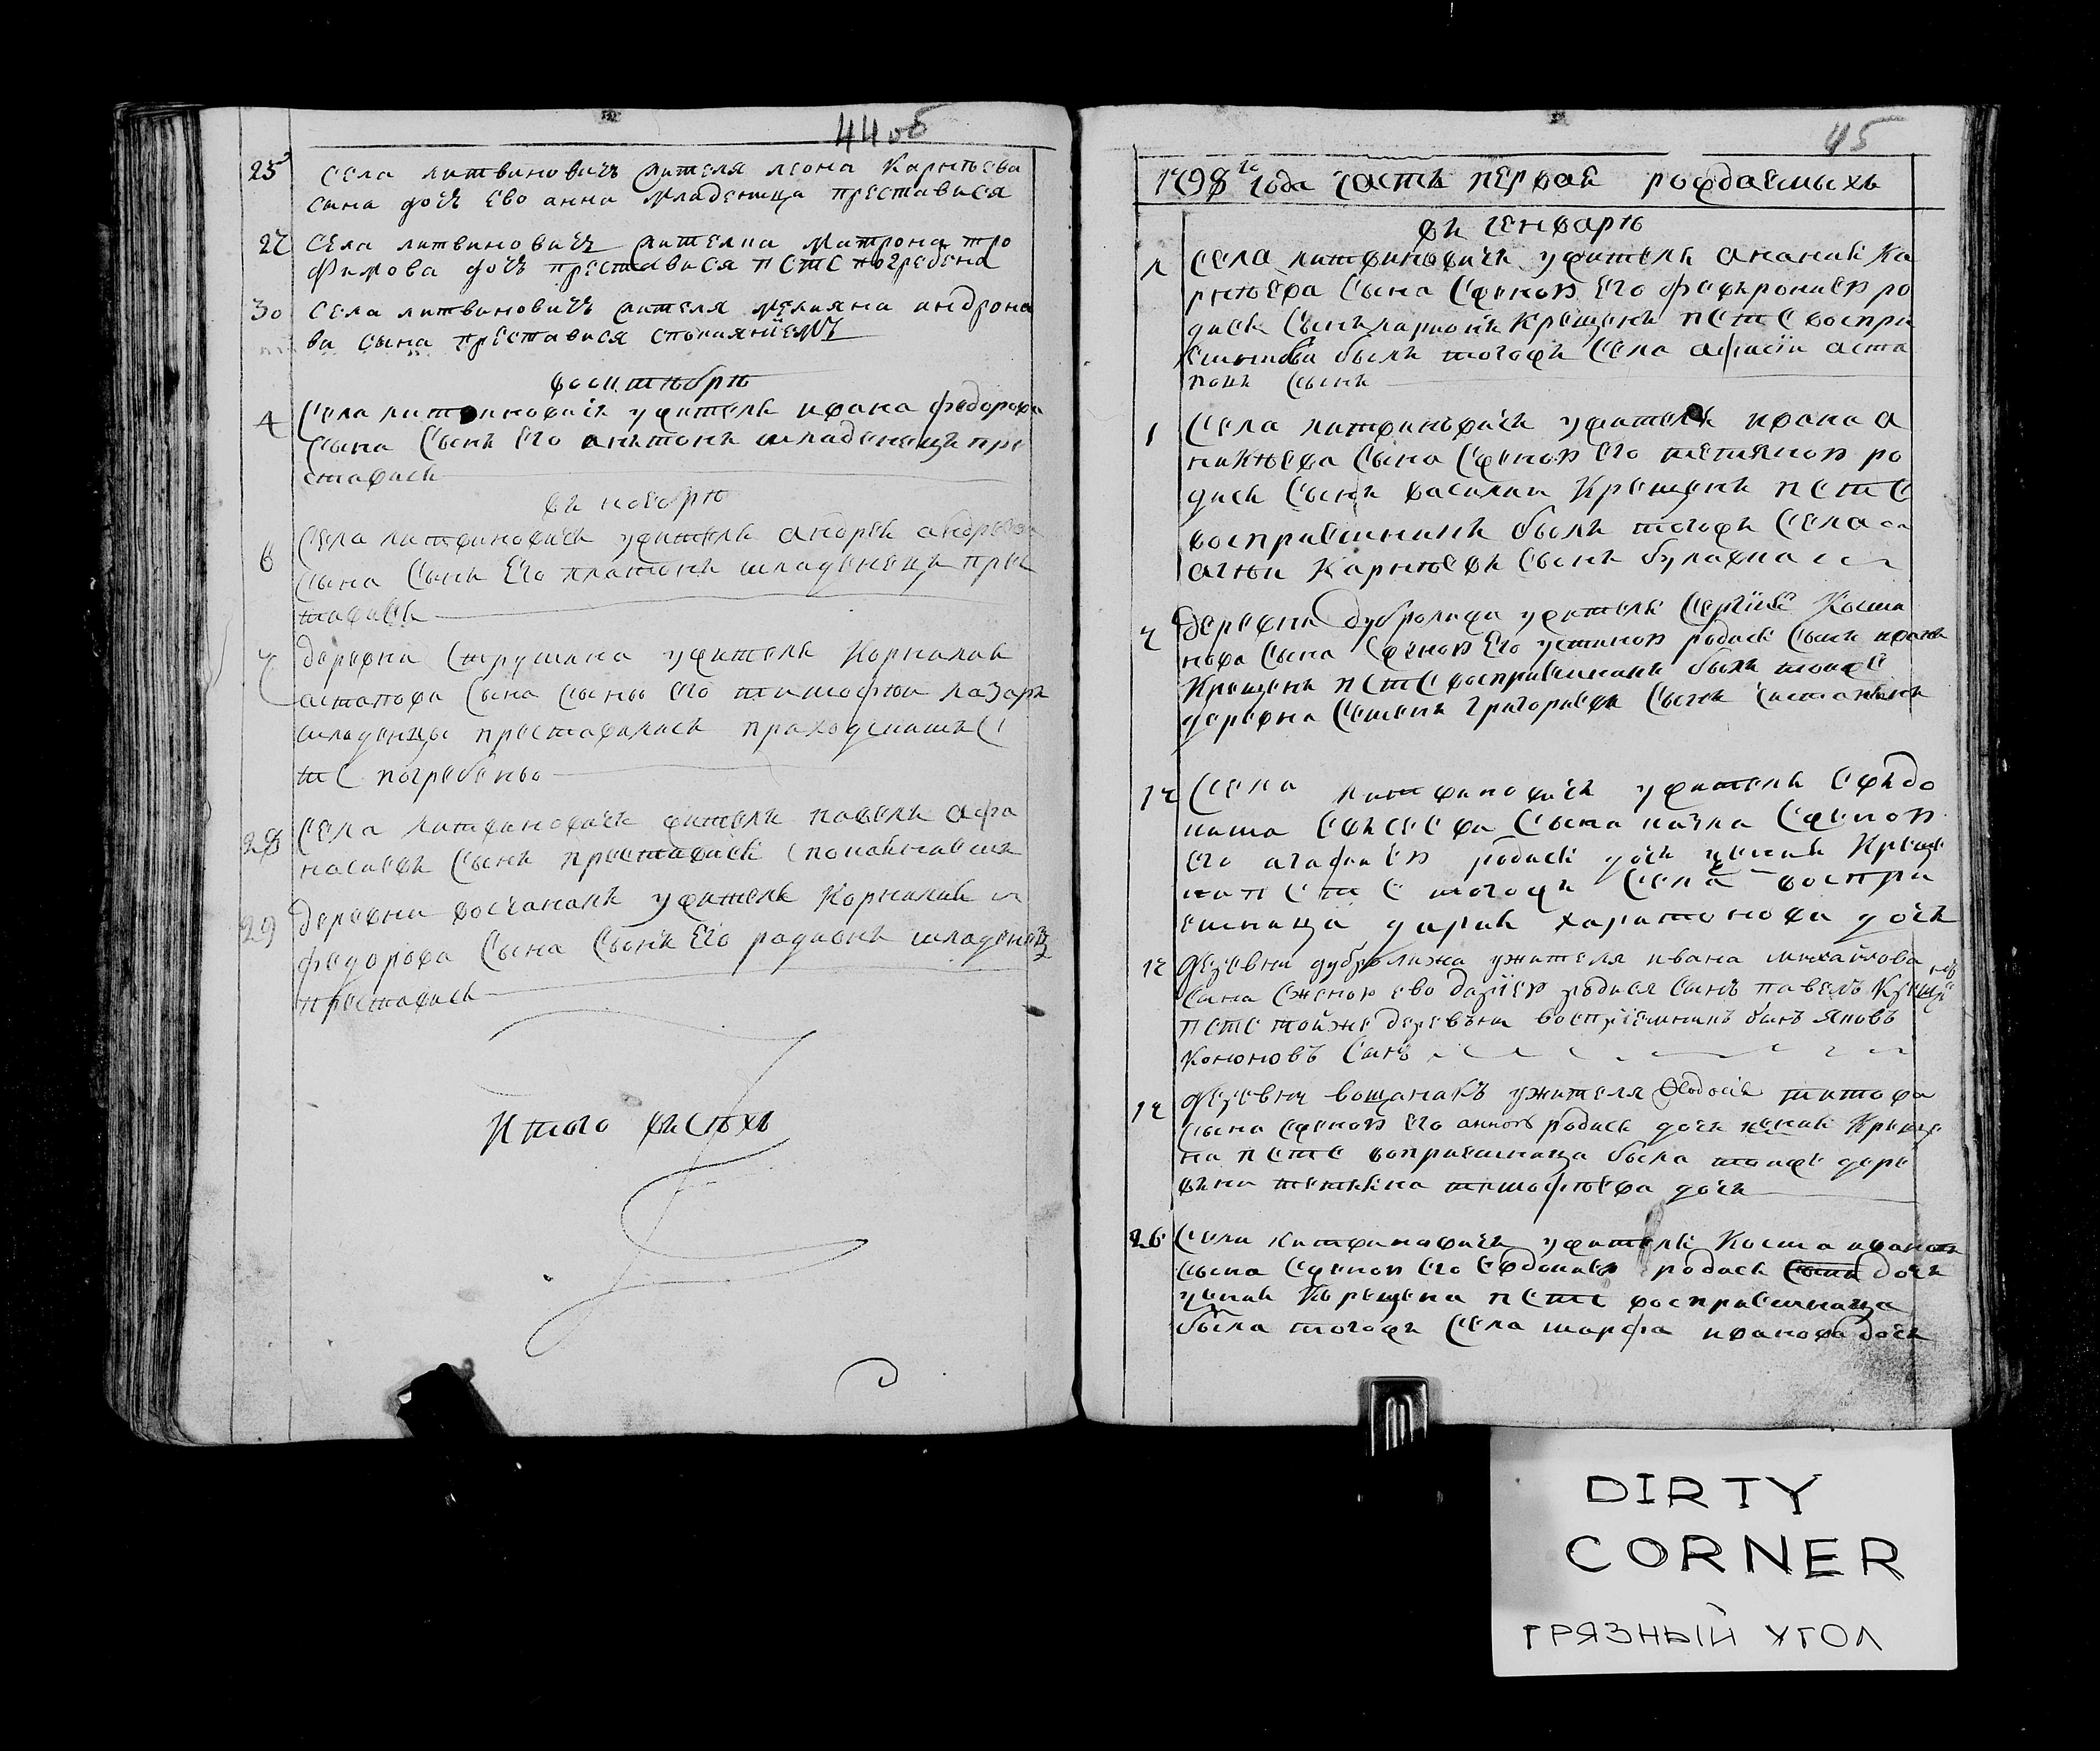 44 об
25 села литвиновичъ жителя леона Карпѣева
сына дочъ ево анна младеница преставися
27 села литвиновичъ жителка матрона тро
фимова дочъ преставися п с т с погребена
30 села литвиновичъ жителя меляна андрона
ва сына преставися
воктюбрѣ
4 Села литвиновичь ужителя ивана федорова
Сына Сынь Его антонь младенець пре
ставись
вь ноебрѣ
6 Села литвиновичь ужителя андрея андреева
Сына Сынь Его платонь младенець прес
тависе
7 деревни Струшина ужителя Корнилия
астапова Сына Сыны его тимофеи лазарь
младенцы преставились
т С погребены
28 Села литвиновичь житель павель афа
насиевь Сынь преставись
29 деревни восчанакь ужителя Корнилия
федорова Сына Сынь Его родионь младенец
преставись
Итого
45
1798 го года часть первая рождаемыхъ
вь генварѣ
1 Села литвиновичь ужителя анания Ка
рпѣева Сына Сженою Его февронием ро
дись Сынь ларионь Крещень п с т с воспри
емникь быль тогожь Села аста
повь Сынь
1 Села литвиновичь ужителя ивана а
никѣева Сына Сженою Его тетяною ро
дись Сынь василии Крещень п с т с
восприемникь быль тогожь Села
Карпѣевь Сынь
7 деревни дубролижа ужителя Сергия Косми
нова Сына Сженою Его устиною родись Сынь ивань
Крещень п с т с восприемникь быль тоиже
деревни Семень григориевь Сынь
17 Села литвиновичь ужителя Евьдо
кима Евьсеева Сына Сженою
его агафиею родись дочь Креще
на п с т с тогожь Села воспри
емница дария харитонова дочь
17 деревни дубролижа ужителя ивана михайлова
сына Сженою ево дариею родися Сынъ павелъ Креще нъ
п с т с тойже деревъни восприемникъ былъ яковъ
Кононовъ Сынъ
17 деревни вощанакъ ужителя Ѳеодосия титова
Сына Сженою Его анною родись дочь Креще
на п с т с восприемница была тоиже дере
вьни тетяна тимофѣева дочь
26 Села литвиновичь ужителя Косма иванова
Сына Сженою Его Евдокиею родись Сынь дочь
Крещена п с т с восприемница
была тогожь Села марфа иванова дочь
DIRTY
CORNER
ГРЯЗНЫЙ УГОЛ